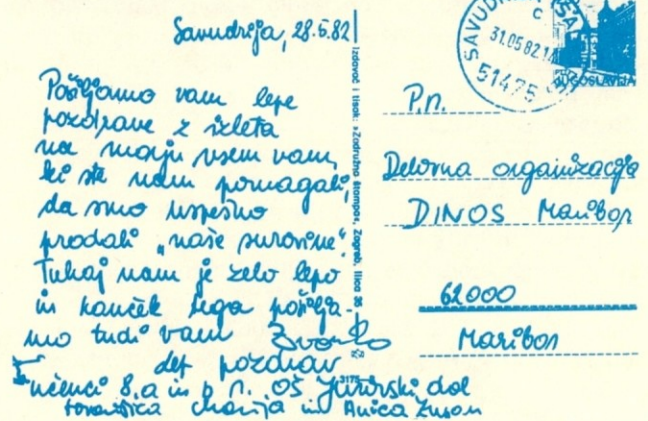 Savudrija, 28.5.82
Pošiljamo vam lepe
pozdrave z izleta
na morju vsem vam,
ki ste nam pomagali,
da smo uspešno
prodali „naše surovine".
Tukaj nam je zelo lepo
in košček tega pošilja-
mo tudi vam
lep pozdrav
učenci 8.a in b r. OŠ Jurovski dol
tovarišica Marija in Anica
Izdavač i tisak: »Zadružna štampa«, Zagreb, Ilica 35
3175
SAVUDRIJA
c
31.05.82
51475
JUGOSLAVIJA
P.n.
Delovna organizacija
DINOS Maribor
62000
Maribor